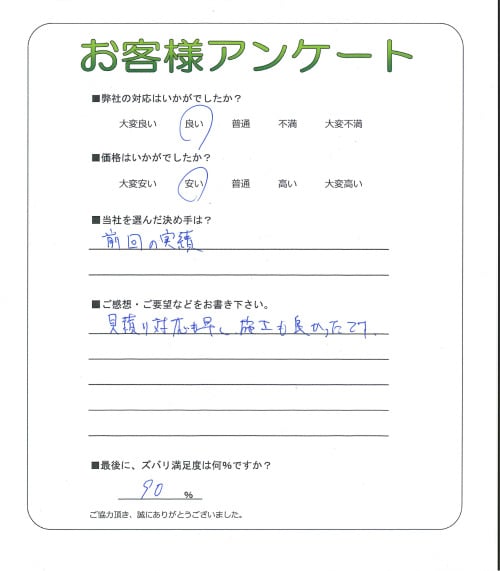 お客様アンケート
■弊社の対応はいかがでしたか？
大変良い 良い 普通 不満 大変不満
■価格はいかがでしたか？
大変安い 安い 普通 高い 大変高い
■当社を選んだ決め手は？
前回の実績
■ご感想・ご要望などをお書き下さい。
見積り対応も早く施工も良かったです
■最後に、ズバリ満足度は何％ですか？
90 %
ご協力頂き、誠にありがとうございました。